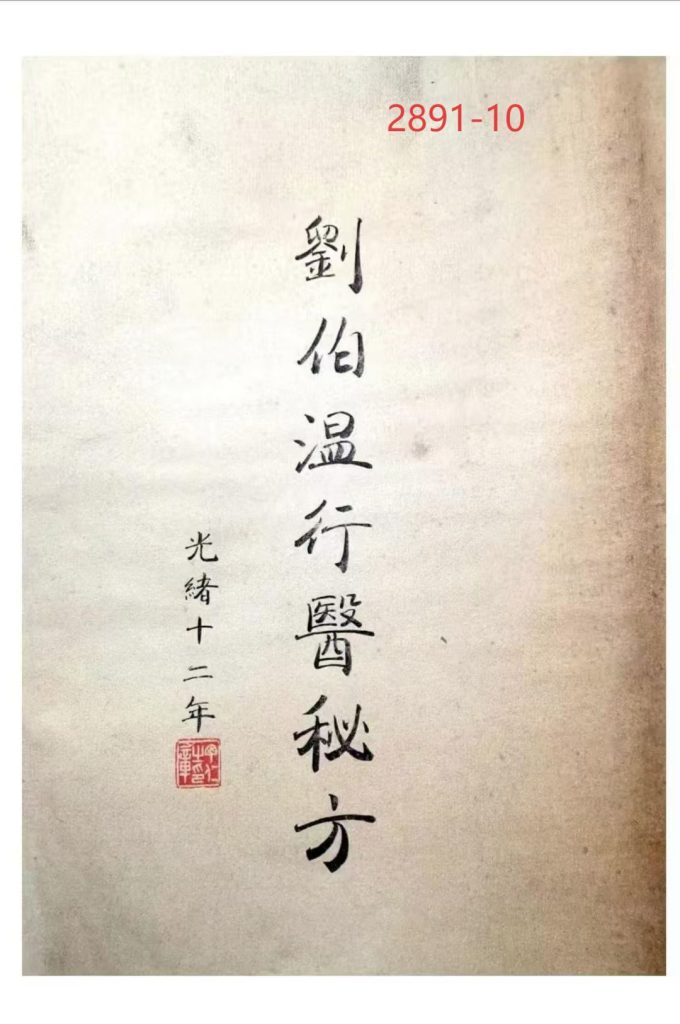 2891-10
劉伯温行醫秘方
光緒十二年